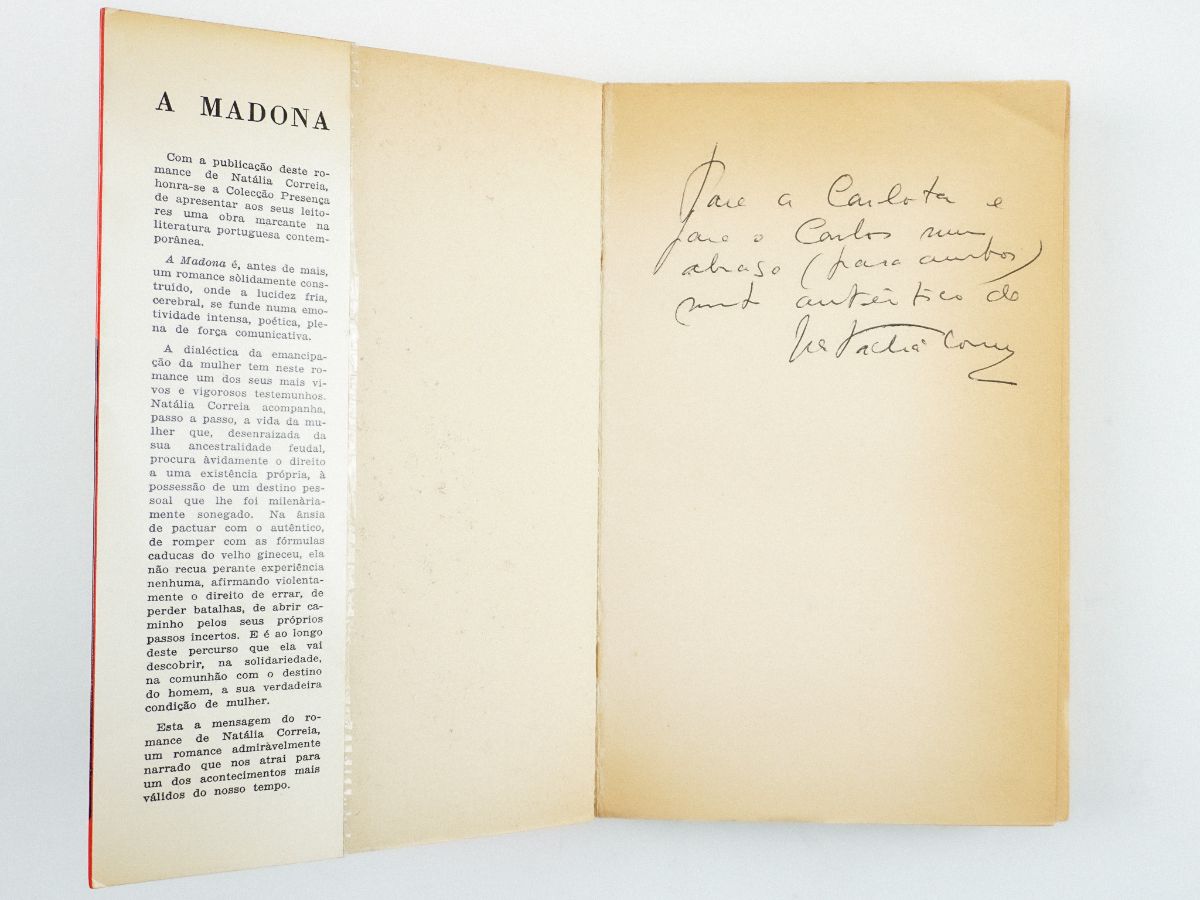 A MADONA
Com a publicação deste ro-
mance de Natália Correia,
honra-se a Colecção Presença
de apresentar aos seus leito-
res uma obra marcante na
literatura portuguesa contem-
porânea.
A Madona é, antes de mais,
um romance sòlidamente cons-
truído, onde a lucidez fria,
cerebral, se funde numa emo-
tividade intensa, poética, ple-
na de força comunicativa.
A dialéctica da emancipa-
ção da mulher tem neste ro-
mance um dos seus mais vi-
vos e vigorosos testemunhos.
Natália Correia acompanha,
passo a passo, a vida da mu-
lher que, desenraizada da
sua ancestralidade feudal,
procura àvidamente o direito
a uma existência própria, à
possessão de um destino pes-
soal que lhe foi milenària-
mente sonegado. Na ânsia
de pactuar com o autêntico,
de romper com as fórmulas
caducas do velho gineceu, ela
não recua perante experiência
nenhuma, afirmando violenta-
mente o direito de errar, de
perder batalhas, de abrir ca-
minho pelos seus próprios
passos incertos. E é ao longo
deste percurso que ela vai
descobrir, na solidariedade,
na comunhão com o destino
do homem, a sua verdadeira
condição de mulher.
Esta a mensagem do ro-
mance de Natália Correia,
um romance admiràvelmente
narrado que nos atrai para
um dos acontecimentos mais
válidos do nosso tempo.
Para a Carlota e
para o Carlos num
abraço (para ambos)
autêntico da
Natália Correia